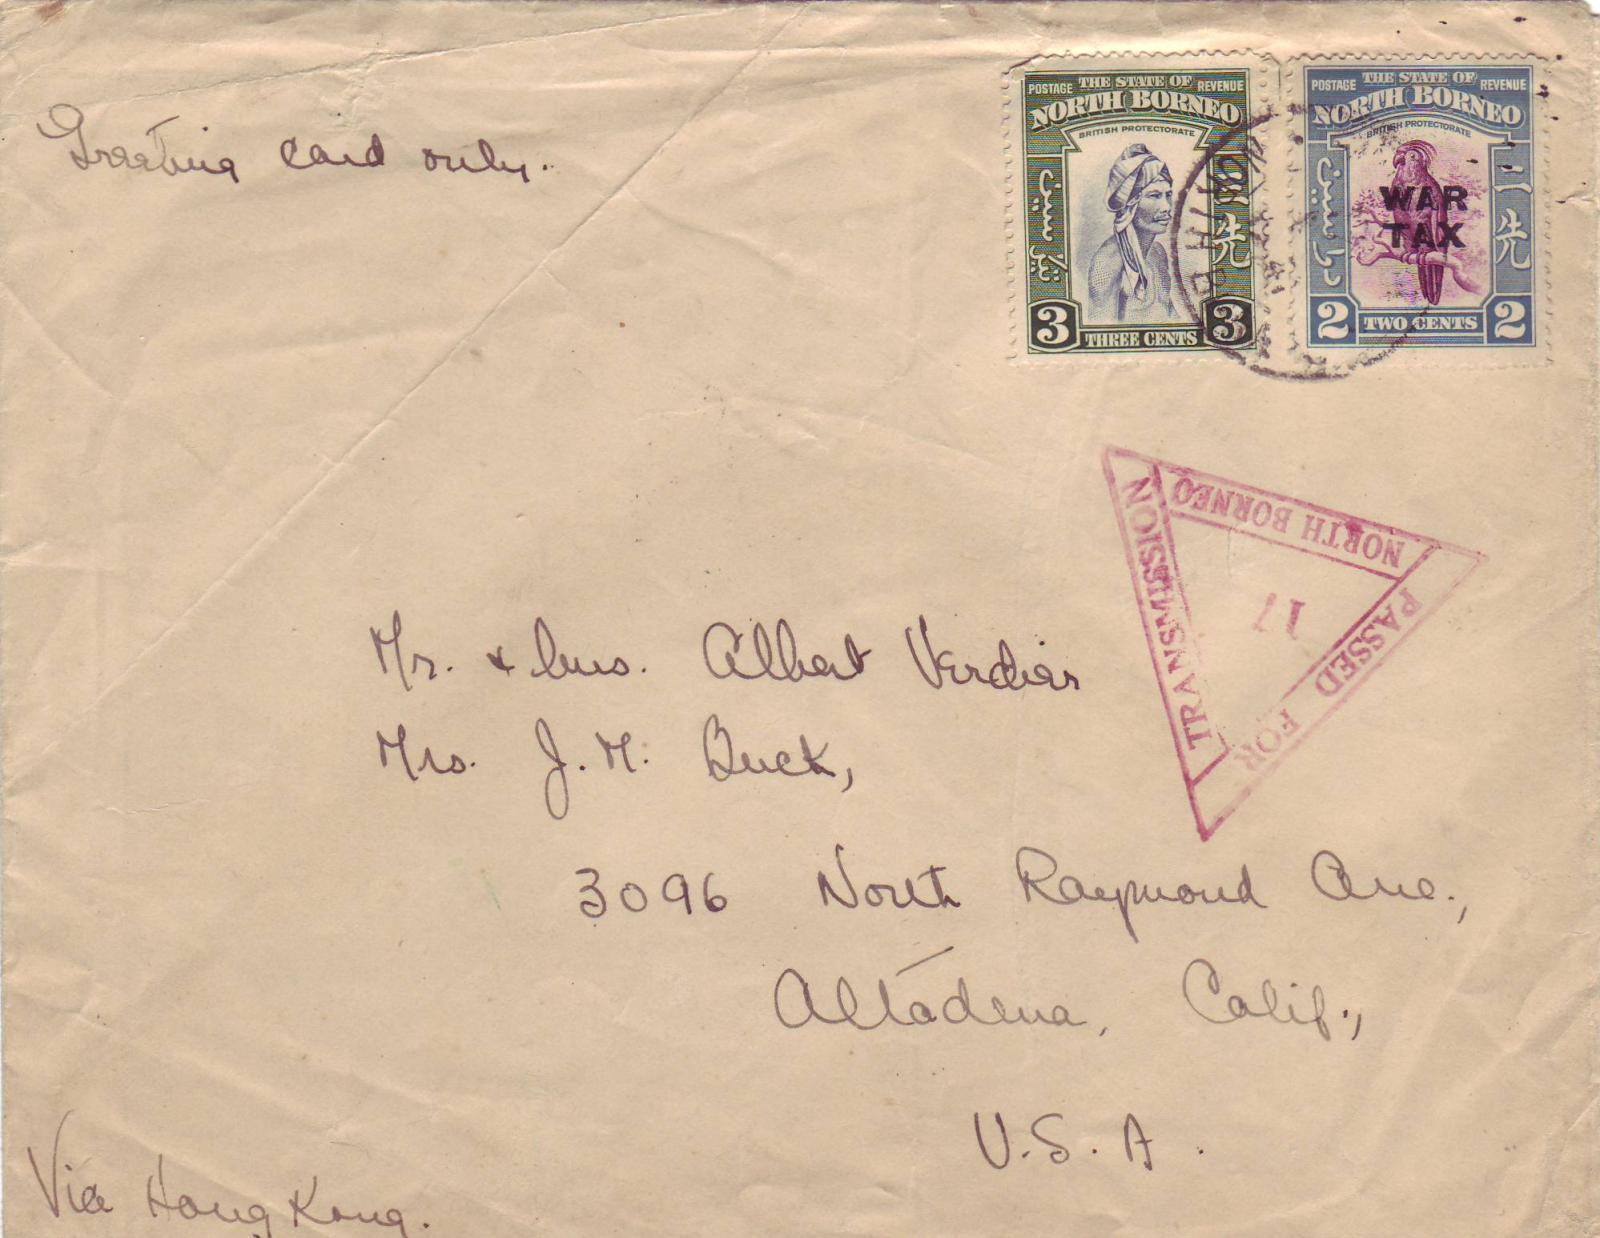 Greeting card only.
POSTAGE THE STATE OF REVENUE
NORTH BORNEO
BRITISH PROTECTORATE
三先
3 THREE CENTS 3
POSTAGE THE STATE OF REVENUE
NORTH BORNEO
BRITISH PROTECTORATE
二先
WAR
TAX
2 TWO CENTS 2
PASSED FOR
TRANSMISSION
NORTH BORNEO
17
Mr. & Mrs. Albert Verdier
Mrs. J. M. Buck,
3096 North Raymond Ave.,
Altadena, Calif.,
U.S.A.
Via Hong Kong.